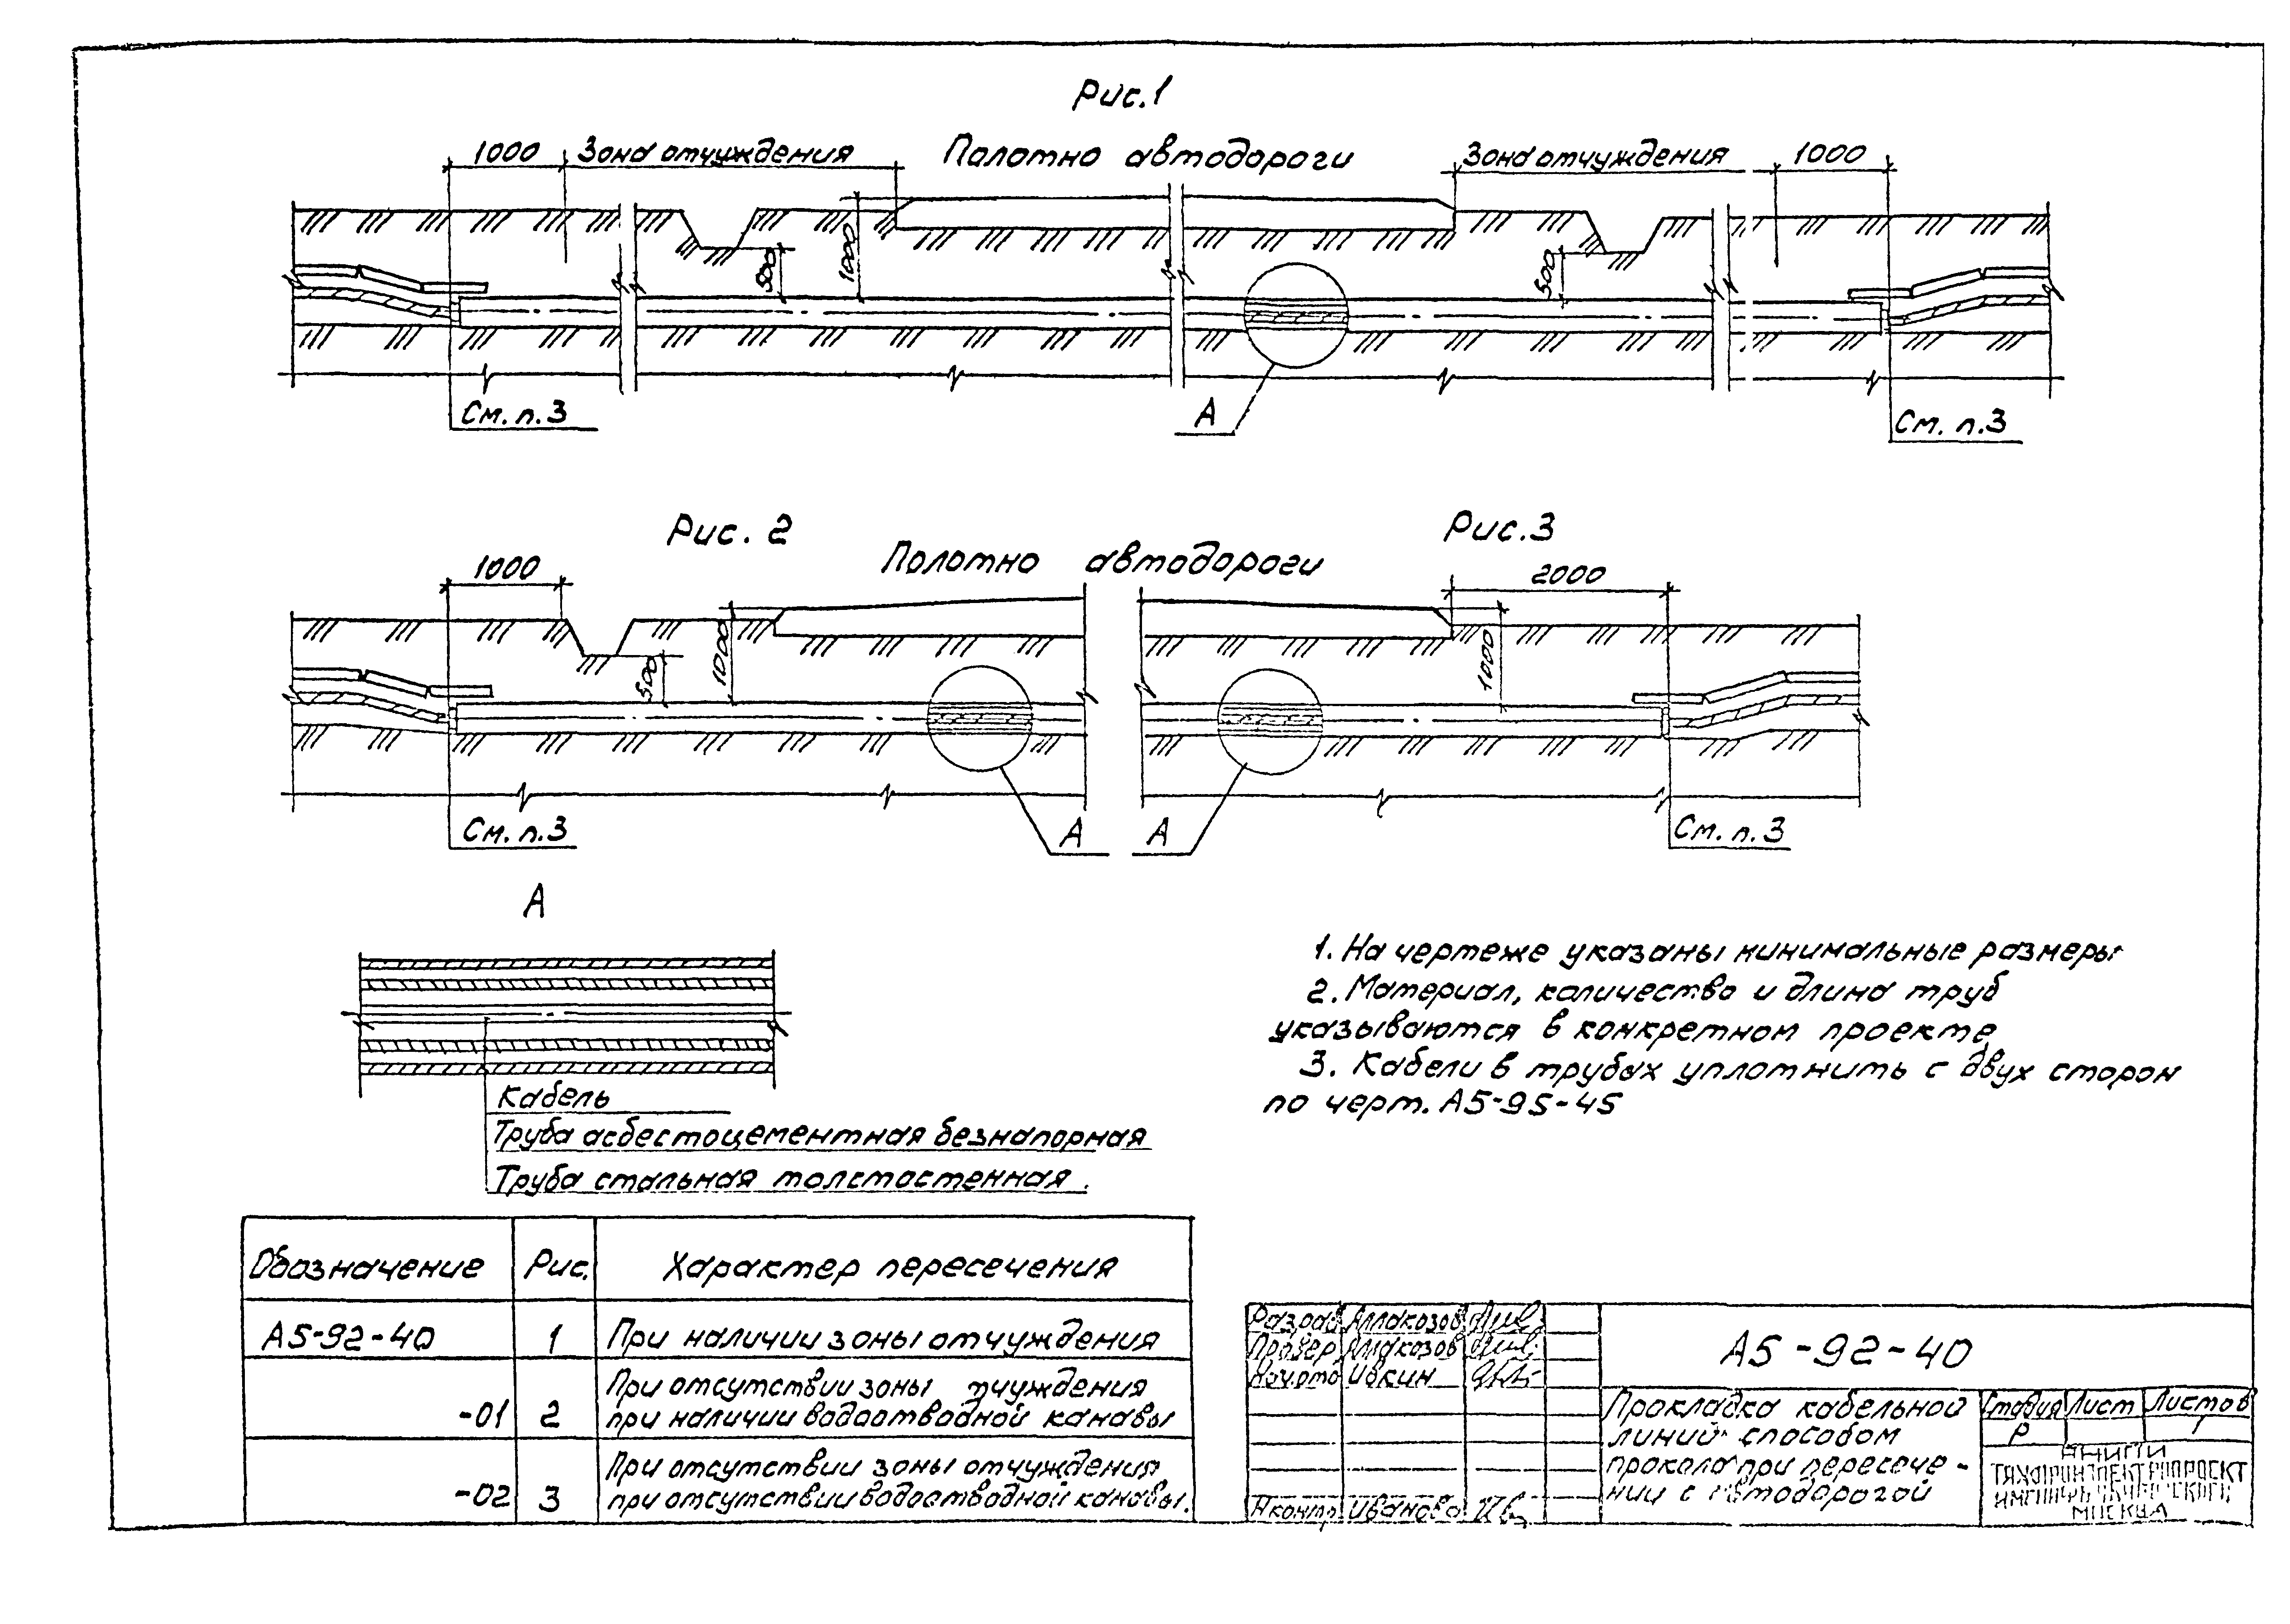 Рис.1
1000 Зона отчуждения Полотно автодороги Зона отчуждения 1000
500 1000 500
См. п.3 А См. п.3
Рис. 2 Рис.3
1000 Полотно автодороги 2000
500 1000 1000
См. п.3 А А См. п.3
А
Кабель
Труба асбестоцементная безнапорная
Труба стальная толстостенная.
1. На чертеже указаны минимальные размеры
2. Материал, количество и длина труб
указываются в конкретном проекте
3. Кабели в трубах уплотнить с двух сторон
по черт. А5-95-45
Обозначение Рис. Характер пересечения
А5-92-40 1 При наличии зоны отчуждения
-01 2 При отсутствии зоны отчуждения
при наличии водоотводной канавы
-02 3 При отсутствии зоны отчуждения
при отсутствии водоотводной канавы.
Разраб
Провер
Нач.отд Ивкин
Н контр Иванова
А5-92-40
Прокладка кабельной
линий способом
прокола при пересече-
нии с автодорогой
Стадия Лист Листов
Р 1
ВНИПИ
ТЯЖПРОМЭЛЕКТРОПРОЕКТ
МОСКВА